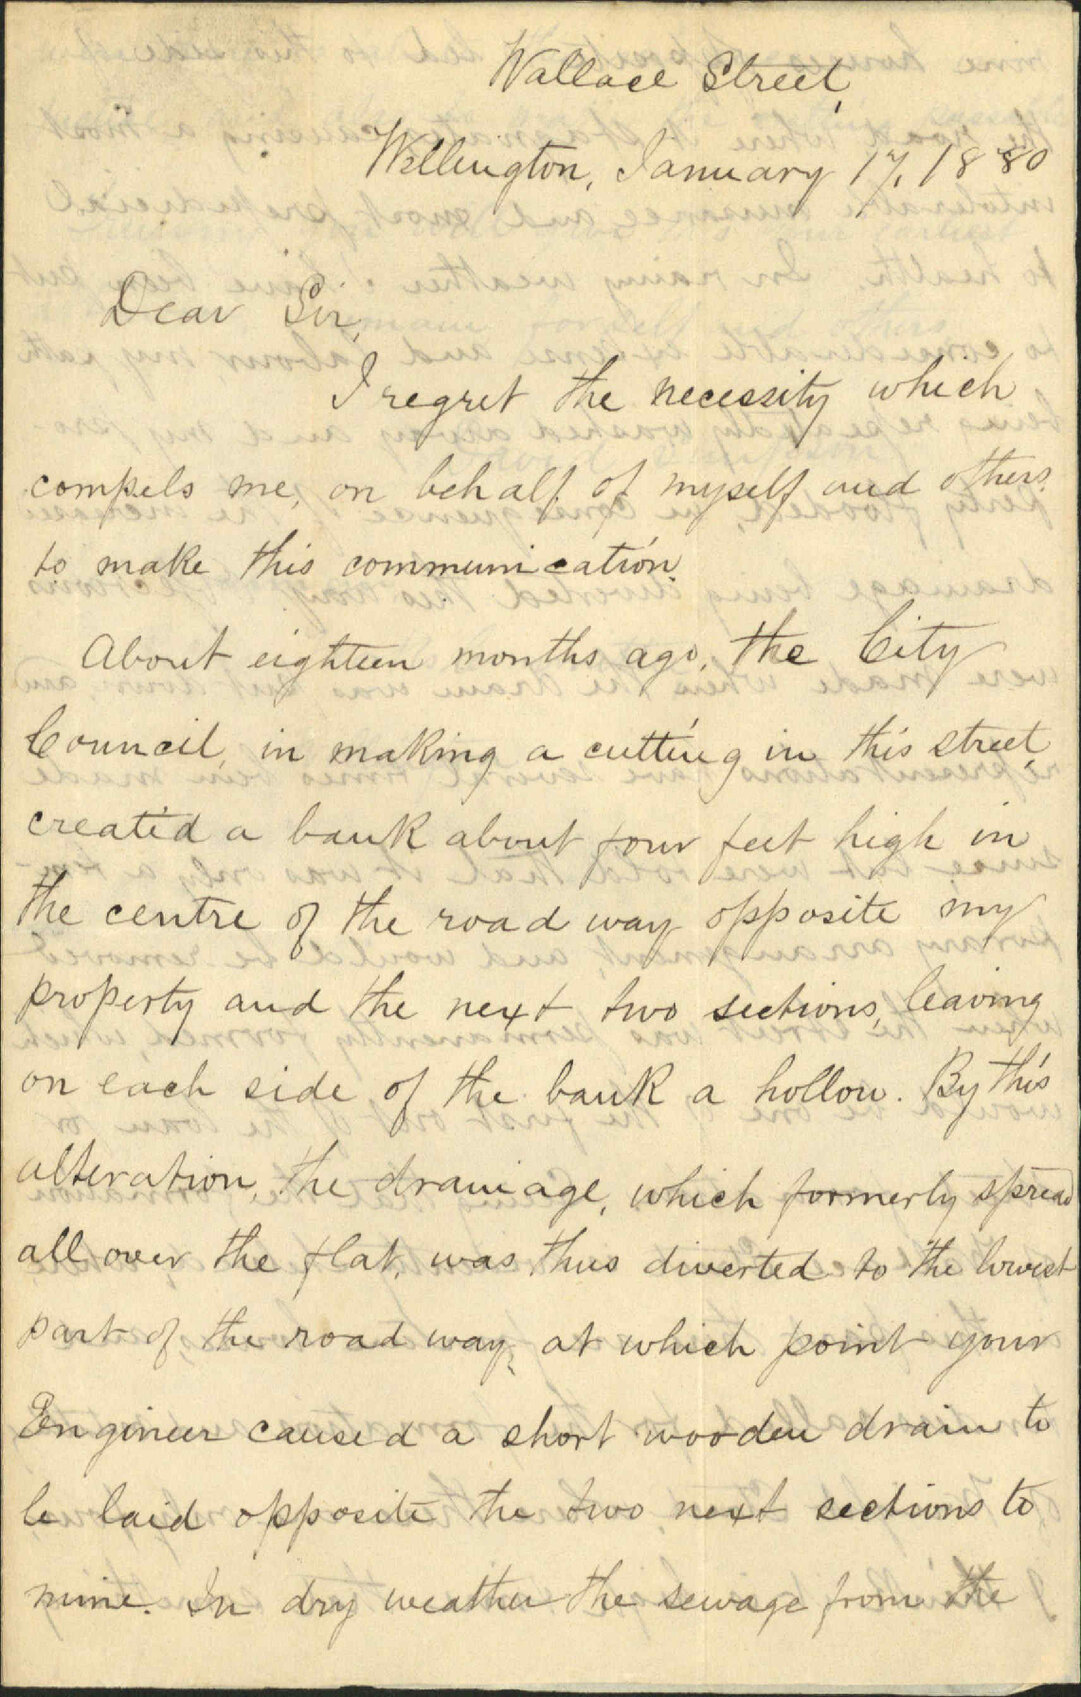 Wallace Street,
Wellington, January 17, 1880
Dear Sir,
I regret the necessity which
compels me, on behalf of myself and others,
to make this communication.
About eighteen months ago, the City
Council, in making a cutting in this street,
created a bank about four feet high in
the centre of the road way opposite my
property and the next two sections, leaving
on each side of the bank a hollow. By this
alteration, the drainage, which formerly spread
all over the flat, was thus diverted to the lowest
part of the road way, at which point your
Engineer caused a short wooden drain to
be laid opposite the two next sections to
mine. In dry weather the sewage from the